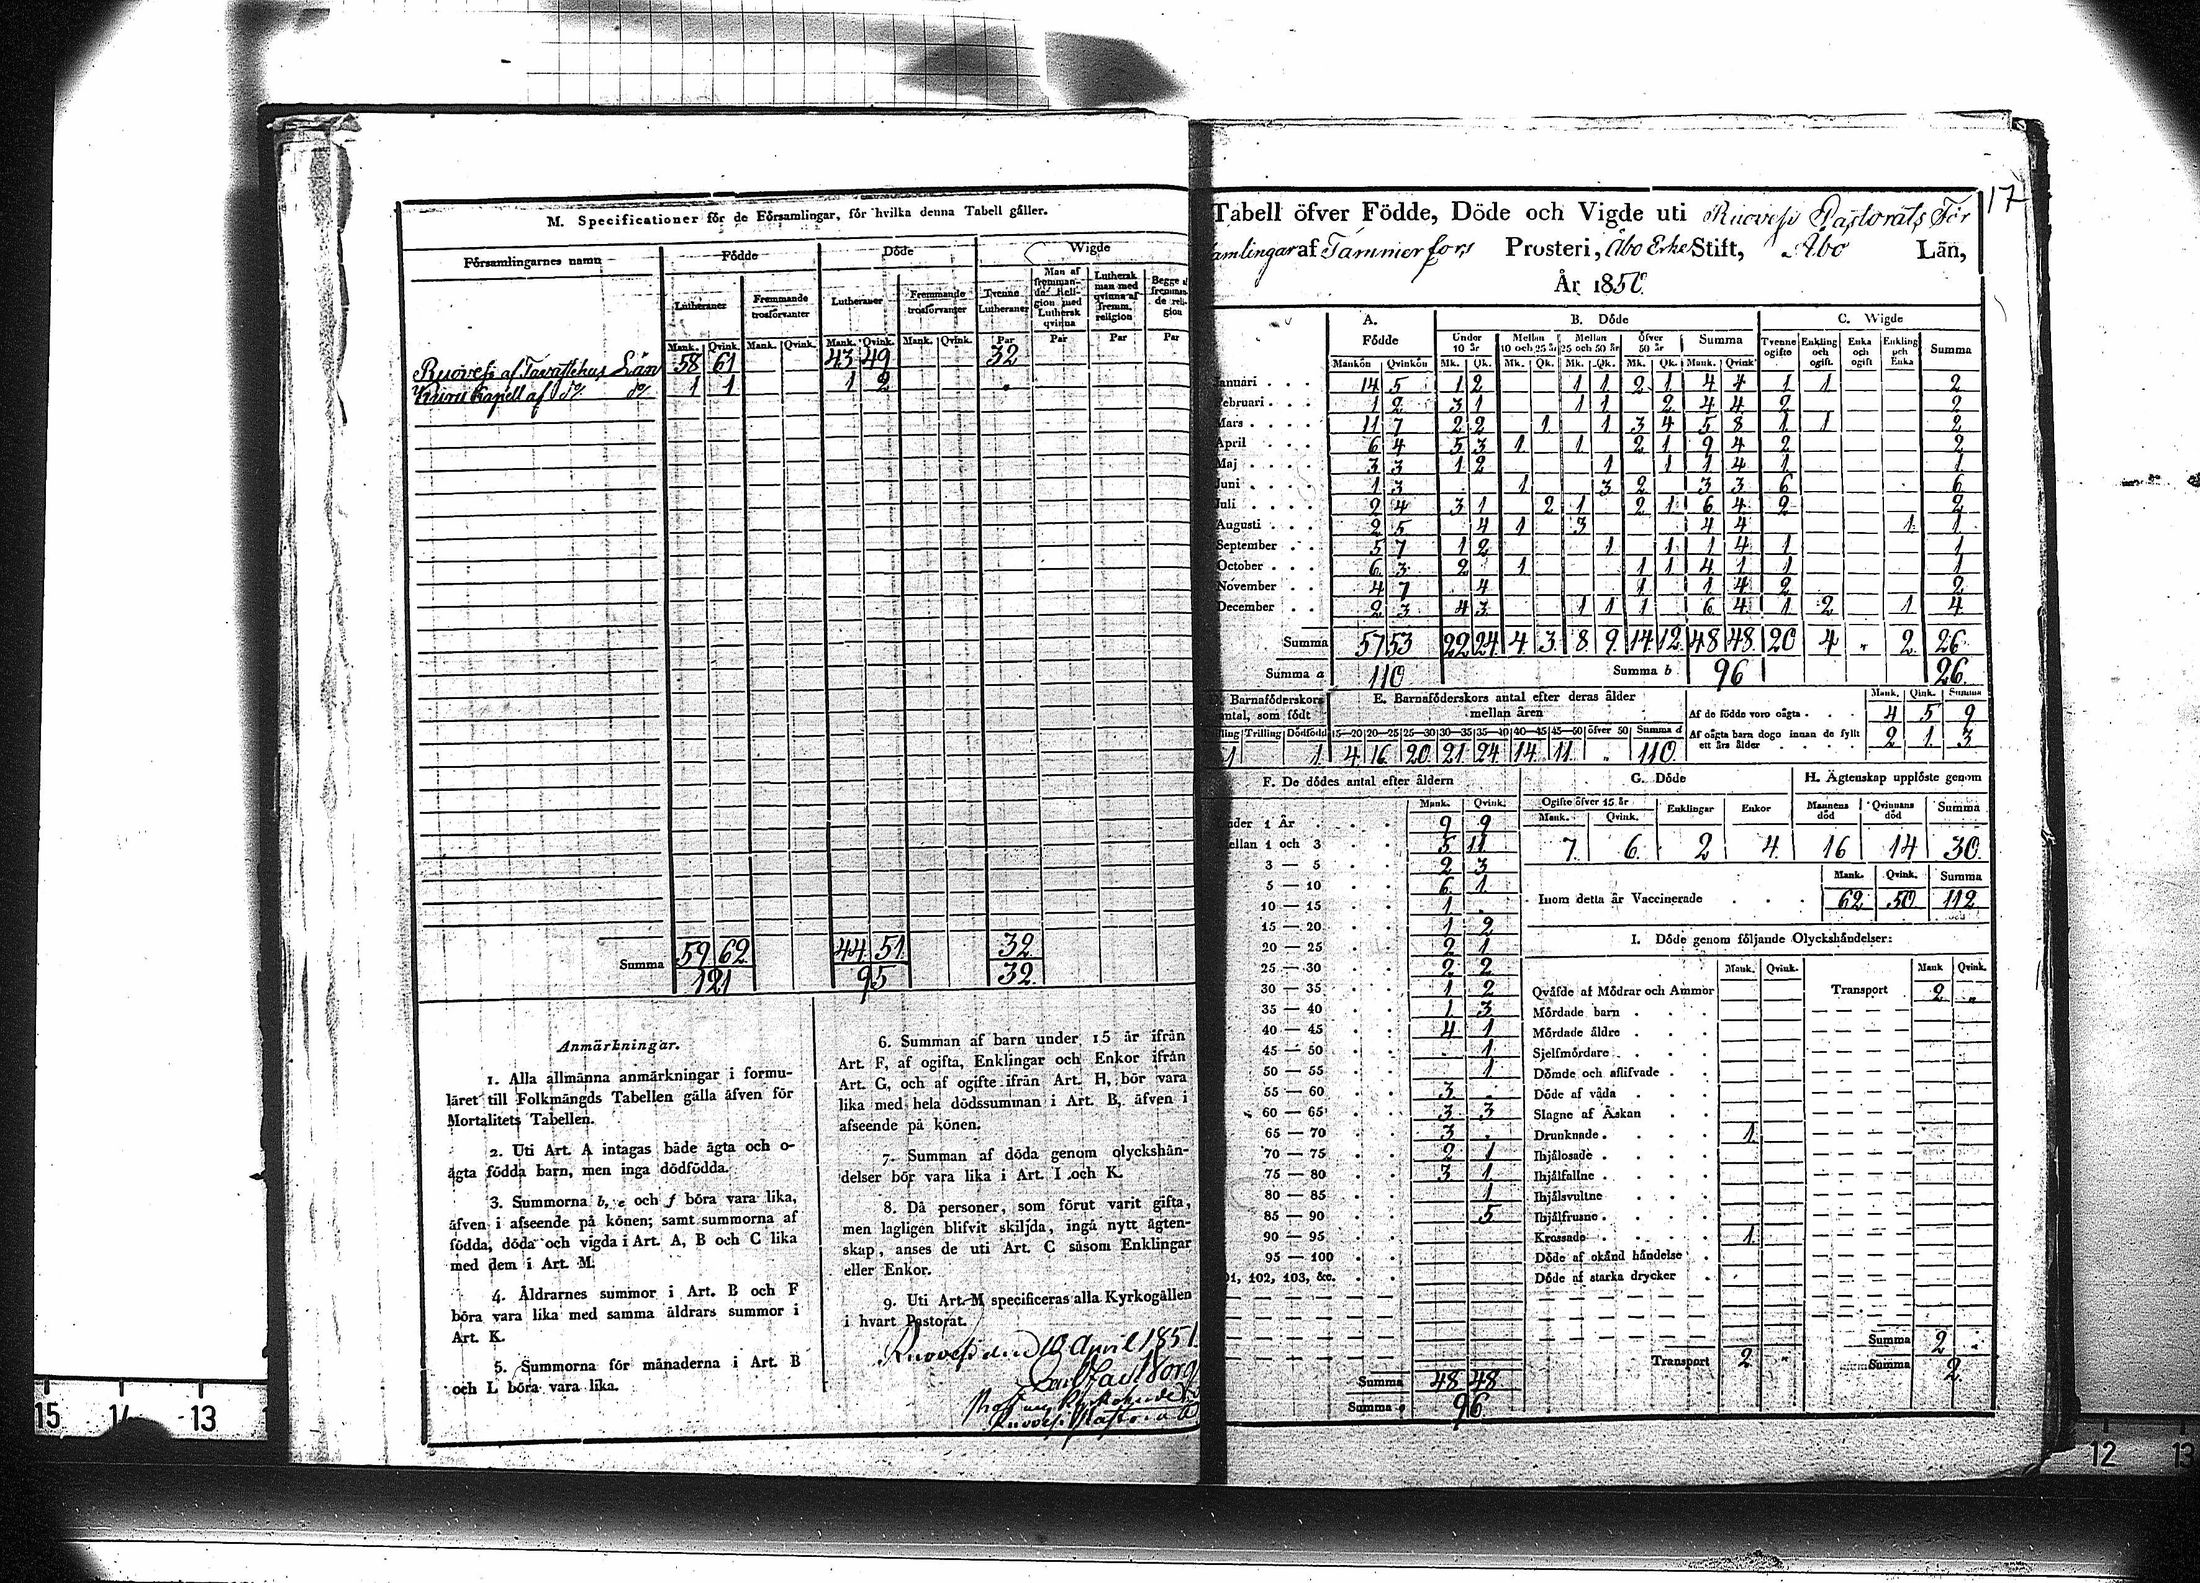 M. Specificationer för de Församlingar, för hvilka denna Tabell gäller.
Församlingarnes namn
Födde
Döde
Wigde
Lutheraner
Fremmande trosförvanter
Lutheraner
Fremmande trosförvanter
Tvenne Lutheraner
Man af fremmande Religion med Luthersk qvinna
Luthersk man med qvinna af fremm. religion
Begge af fremmande religion
Mank. Qvink. Mank. Qvink. Mank. Qvink. Mank. Qvink. Par Par Par Par
Ruovesi af Tavastehus Län 58 61 43 49 32
Kuru Kapell af do do 1 1 1 2
Summa 59 62 44 51 32
121 95 32
Anmärkningar.
1. Alla allmänna anmärkningar i formu-
läret till Folkmängds Tabellen gälla äfven för
Mortalitets Tabellen.
2. Uti Art. A intagas både ägta och o-
ägta födda barn, men inga dödfödda.
3. Summorna b, e och f böra vara lika,
äfven i afseende på könen; samt summorna af
födda, döda och vigda i Art. A, B och C lika
med dem i Art. M.
4. Åldrarnes summor i Art. B och F
böra vara lika med samma åldrars summor i
Art. K.
5. Summorna för månaderna i Art. B
och L böra vara lika.
6. Summan af barn under 15 år ifrån
Art. F, af ogifta, Enklingar och Enkor ifrån
Art. G, och af ogifte ifrån Art. H, bör vara
lika med hela dödssumman i Art. B, äfven i
afseende på könen.
7. Summan af döda genom olyckshän-
delser bör vara lika i Art. I och K.
8. Då personer, som förut varit gifta,
men lagligen blifvit skiljda, ingå nytt ägten-
skap, anses de uti Art. C såsom Enklingar
eller Enkor.
9. Uti Art. M specificeras alla Kyrkogällen
i hvart Pastorat.
Ruovesi den 10 April 1851.
17
Tabell öfver Födde, Döde och Vigde uti Ruovesi Pastorats För
amlingar af Tammerfors Prosteri, Åbo Erke Stift, Åbo Län,
År 1850.
A. Födde
B. Döde
C. Wigde
Under 10 år
Mellan 10 och 25 år
Mellan 25 och 50 år
Öfver 50 år
Summa
Tvenne ogifte
Enkling och ogift
Enka och ogift
Enkling och Enka
Summa
Mankön Qvinkön Mk. Qk. Mk. Qk. Mk. Qk. Mk. Qk. Mank. Qvink
Januari 14 5 1 2 1 1 2 1 4 4 1 1 2
Februari 1 2 3 1 1 1 2 4 4 2 2
Mars 11 7 2 2 1 1 3 4 5 8 1 1 2
April 6 4 5 3 1 1 2 1 9 4 2 2
Maj 3 3 1 2 1 1 1 4 1 1
Juni 1 3 1 3 2 3 3 6 6
Juli 2 4 3 1 2 1 2 1 6 4 2 2
Augusti 2 5 4 1 3 4 4 1 1
September 5 7 1 2 1 1 1 4 1 1
October 6 3 2 1 1 1 4 1 1 1
November 4 7 4 1 1 4 2 2
December 2 3 4 3 1 1 1 6 4 1 2 1 4
Summa 57 53 22 24 4 3 8 9 14 12 48 48 20 4 „ 2 26
Summa a 110 Summa b 96 26
Barnaföderskors antal, som födt
Trilling Dödfödd
1 1
E. Barnaföderskors antal efter deras ålder
mellan åren
15—20 20—25 25—30 30—35 35—40 40—45 45—50 öfver 50 Summa d
4 16 20 21 24 14 11 „ 110
Mank. Qink. Summa
Af de födde voro oägta 4 5 9
Af oägta barn dogo innan de fyllt
ett års ålder 2 1 3
F. De dödes antal efter åldern
Mank. Qvink.
nder 1 År 9 9
ellan 1 och 3 5 11
3 — 5 2 3
5 — 10 6 1
10 — 15 1
15 — 20 1 2
20 — 25 2 1
25 — 30 2 2
30 — 35 1 2
35 — 40 1 3
40 — 45 4 1
45 — 50 1
50 — 55 1
55 — 60 3
60 — 65 3 3
65 — 70 3
70 — 75 2 1
75 — 80 3 1
80 — 85 1
85 — 90 5
90 — 95
95 — 100
01, 102, 103, &c.
Summa 48 48
Summa e 96
G. Döde
Ogifte öfver 15 år
Mank. Qvink. Enklingar Enkor
7 6 2 4
H. Ägtenskap upplöste genom
Mannens död Qvinnans död Summa
16 14 30
Mank. Qvink. Summa
Inom detta år Vaccinerade 62 50 112
I. Döde genom följande Olyckshändelser:
Mank. Qvink. Mank Qvink.
Qväfde af Mödrar och Ammor Transport 2 „
Mördade barn
Mördade äldre
Sjelfmördare
Dömde och aflifvade
Döde af våda
Slagne af Åskan
Drunknade 1
Ihjälosade
Ihjälfallne
Ihjälsvultne
Ihjälfrusne
Krossade 1
Döde af okänd händelse
Döde af starka drycker
Summa 2 „
Transport 2 „ Summa 2
15 14 13
12 13